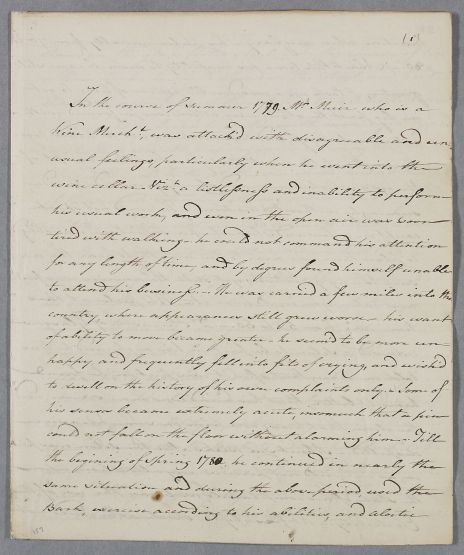 (1)
In the course of summer 1779 Mr. Muir who is a
Wine Mercht. was attack'd with disagreeable and un-
usual feelings, particularly when he went into the
wine cellar Vizt. a listlessness and inability to perform
his usual work, and even in the open air was soon
tired with walking - he could not command his attention
for any length of time, and by degrees found himself unable
to attend his business - He was carried a few miles into the
country where appearances still grew worse - his want
of ability to move became greater - he seemd to be more un-
happy and frequently fell into fits of crying, and wished
to dwell on the history of his own complaints only - Some of
his senses became extremely acute, insomuch that a pin
could not fall on the floor without alarming him - Till
the begining of Spring 1780 he continued in nearly the
same situation and during the above period used the
Bark, exercise according to his abilities, and Aloetic
157